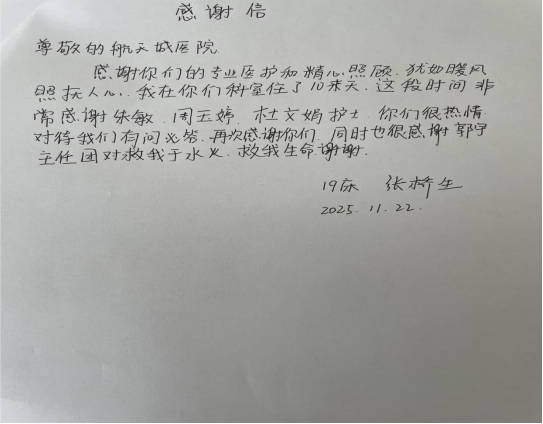 感谢信
尊敬的航天城医院
感谢你们的专业医护和精心照顾,犹如暖风
照抚人心,我在你们科室住了10来天,这段时间非
常感谢朱敏、周玉婷、杜文娟护士,你们很热情
对待我们有问必答,再次感谢你们,同时也很感谢郭宇
主任团对救我于水火,救我生命谢谢.
19床 张桥生
2025.11.22.